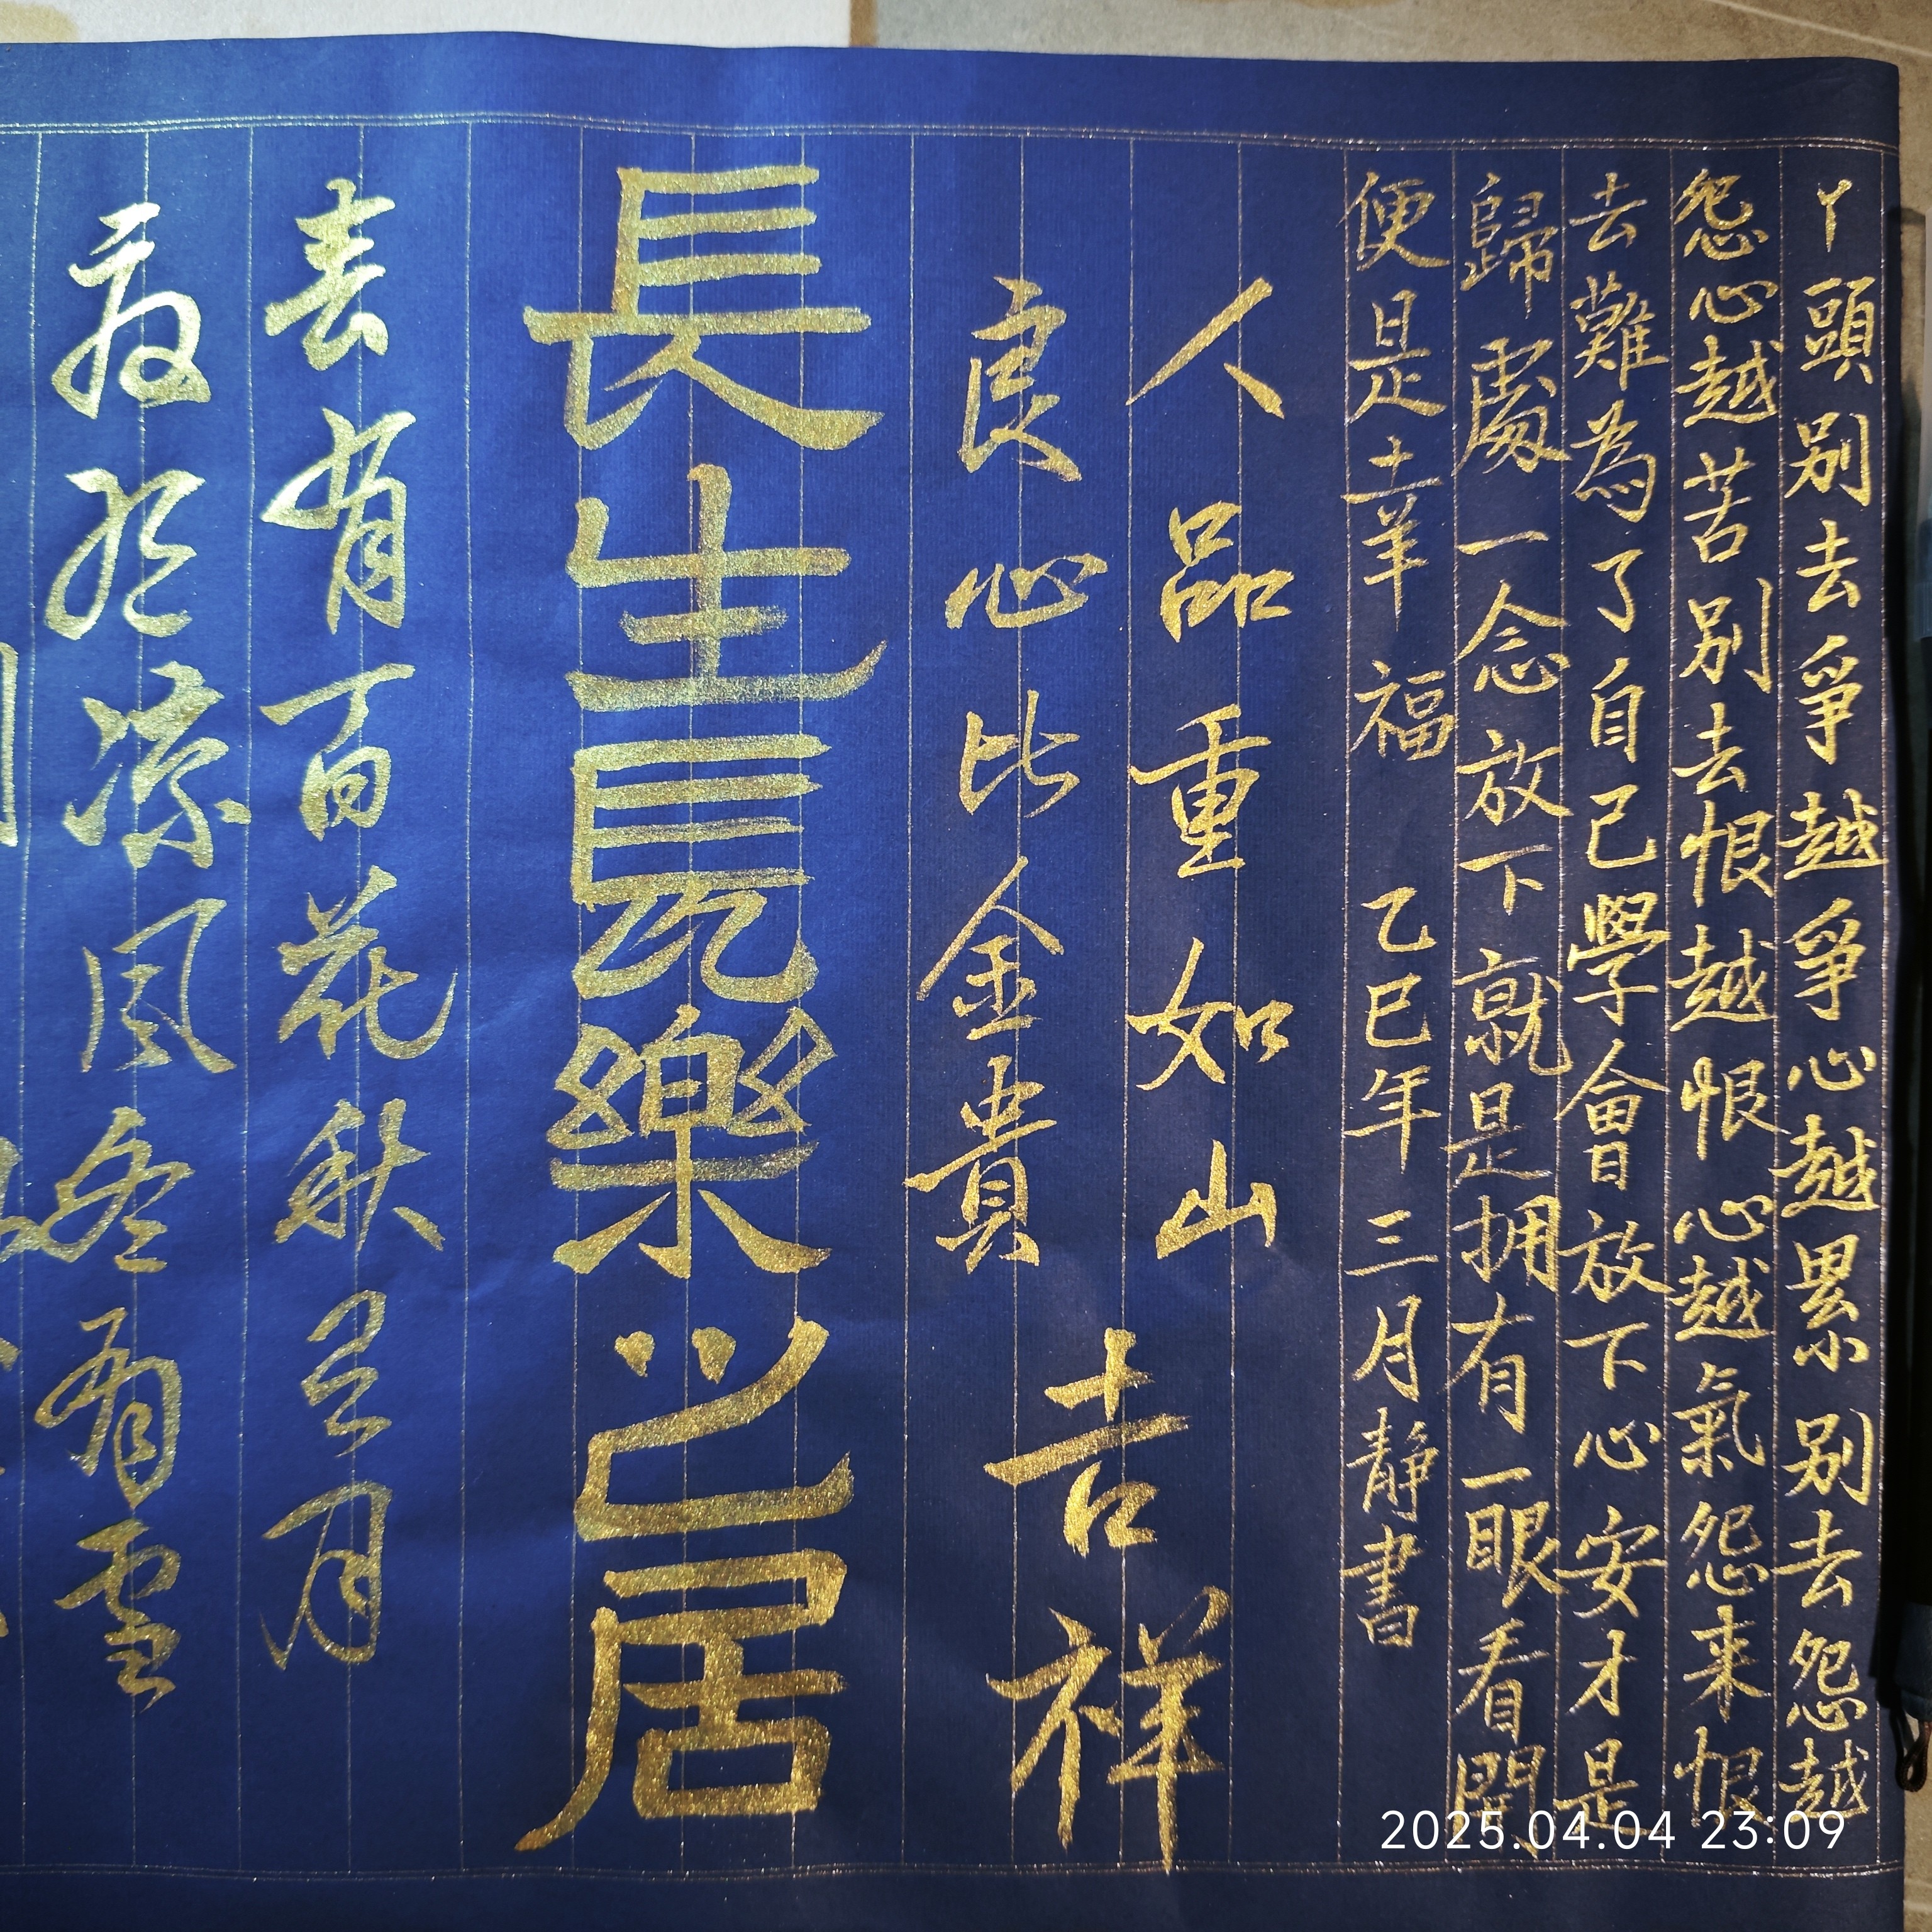 丫頭别去爭越爭心越累别去怨越
怨心越苦别去恨越恨心越氣怨来恨
去難為了自己學會放下心安才是
歸處一念放下就是拥有一眼看開
便是幸福 乙巳年三月静書
人品重如山
良心比金貴
吉祥
長生長樂之居
春有百花秋月
夏凉風冬有雪
2025.04.04 23:09